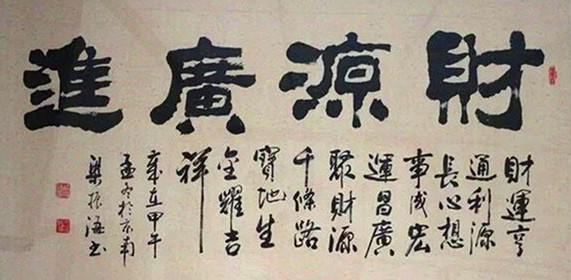 財源廣進
財運亨
通利源
長心想
事成宏
運昌廣
聚財源
千條路
寶地生
金耀吉
祥
歲在甲午
孟冬於京南
梁振海书